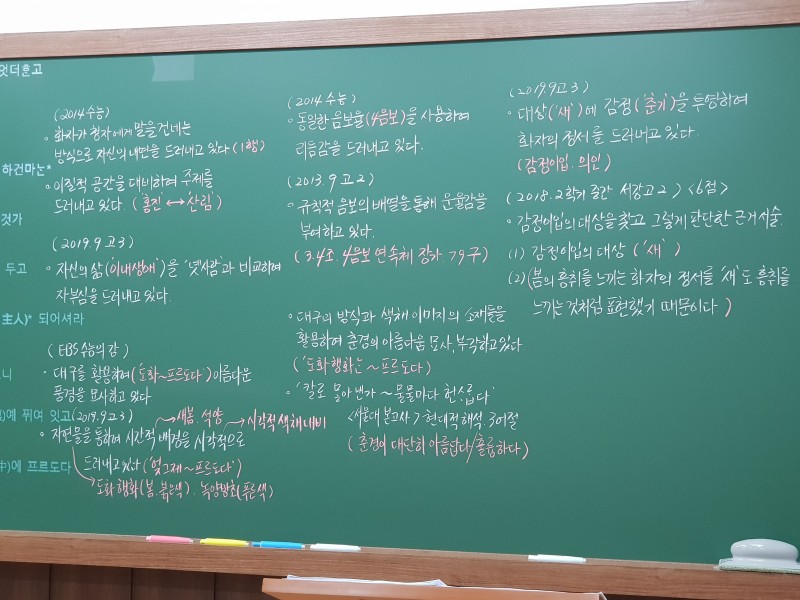 엇더ᄒᆞᆫ고
하건마ᄂᆞᆫ*
것가
두고
主人)* 되어셔라
니
예 퓌여 잇고
에 프르도다
(2014 수능)
◦ 화자가 청자에게 말을 건네는
방식으로 자신의 내면을 드러내고 있다 (1행)
◦ 이질적 공간을 대비하여 주제를
드러내고 있다. ('홍진' ↔ '산림')
(2019. 9 고3)
◦ 자신의 삶('이내생애')을 '녯사람'과 비교하여
자부심을 드러내고 있다.
(EBS 수능의 감)
◦ 대구를 활용하여('도화~프르도다') 아름다운
풍경을 묘사하고 있다
(2019. 9 고3)
→ 새봄. 석양 → 시각적 색채 대비
◦ 자연물을 통하여 시간적 배경을 시각적으로
드러내고 있다 ('엊그제~프르도다')
도화행화(봄.붉은색). 녹양방초(푸른색)
(2014 수능)
◦ 동일한 음보율(4음보)을 사용하여
리듬감을 드러내고 있다.
(2013. 9 고2)
◦ 규칙적 음보의 배열을 통해 운율감을
부여하고 있다.
(3.4조. 4음보 연속체 장가 79구)
◦ 대구의 방식과 색채 이미지의 소재들을
활용하여 춘경의 아름다움 묘사, 부각하고 있다
('도화행화는 ~ 프르도다')
◦ '칼로 몰아낸가 ~ 물물마다 헌ᄉᆞ롭다'
<서울대 본고사> 현대적 해석. 3어절
(춘경이 대단히 아름답다/훌륭하다)
(2019. 9 고3)
◦ 대상('새')에 감정('춘기')을 투영하여
화자의 정서를 드러내고 있다.
(감정이입. 의인)
(2018. 2학기 중간 서강고2) <6점>
◦ 감정이입의 대상을 찾고 그렇게 판단한 근거 서술.
(1) 감정이입의 대상 ('새')
(2) (봄의 흥취를 느끼는 화자의 정서를 '새'도 흥취를
느끼는 것처럼 표현했기 때문이다)